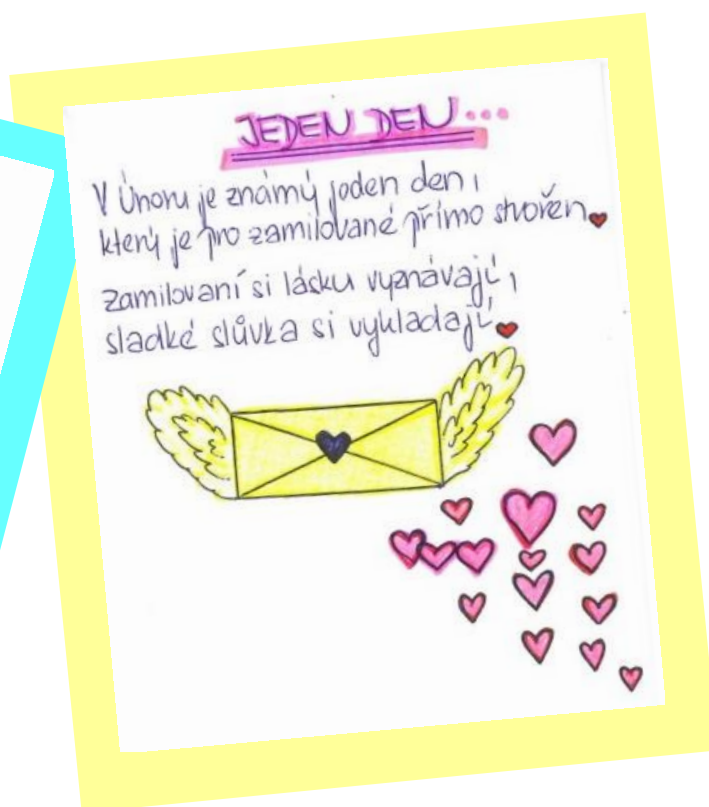 JEDEN DEN...
V Únoru je známý jeden den,
který je pro zamilované přímo stvořen
zamilovaní si lásku vyznávají,
sladké slůvka si vykládají